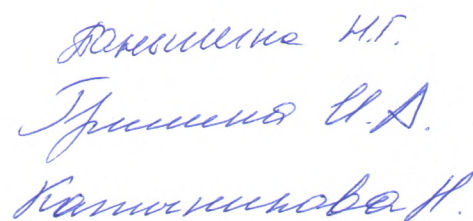 Паньшина Н.Г.
Гришина И.А.
Калинникова Н.